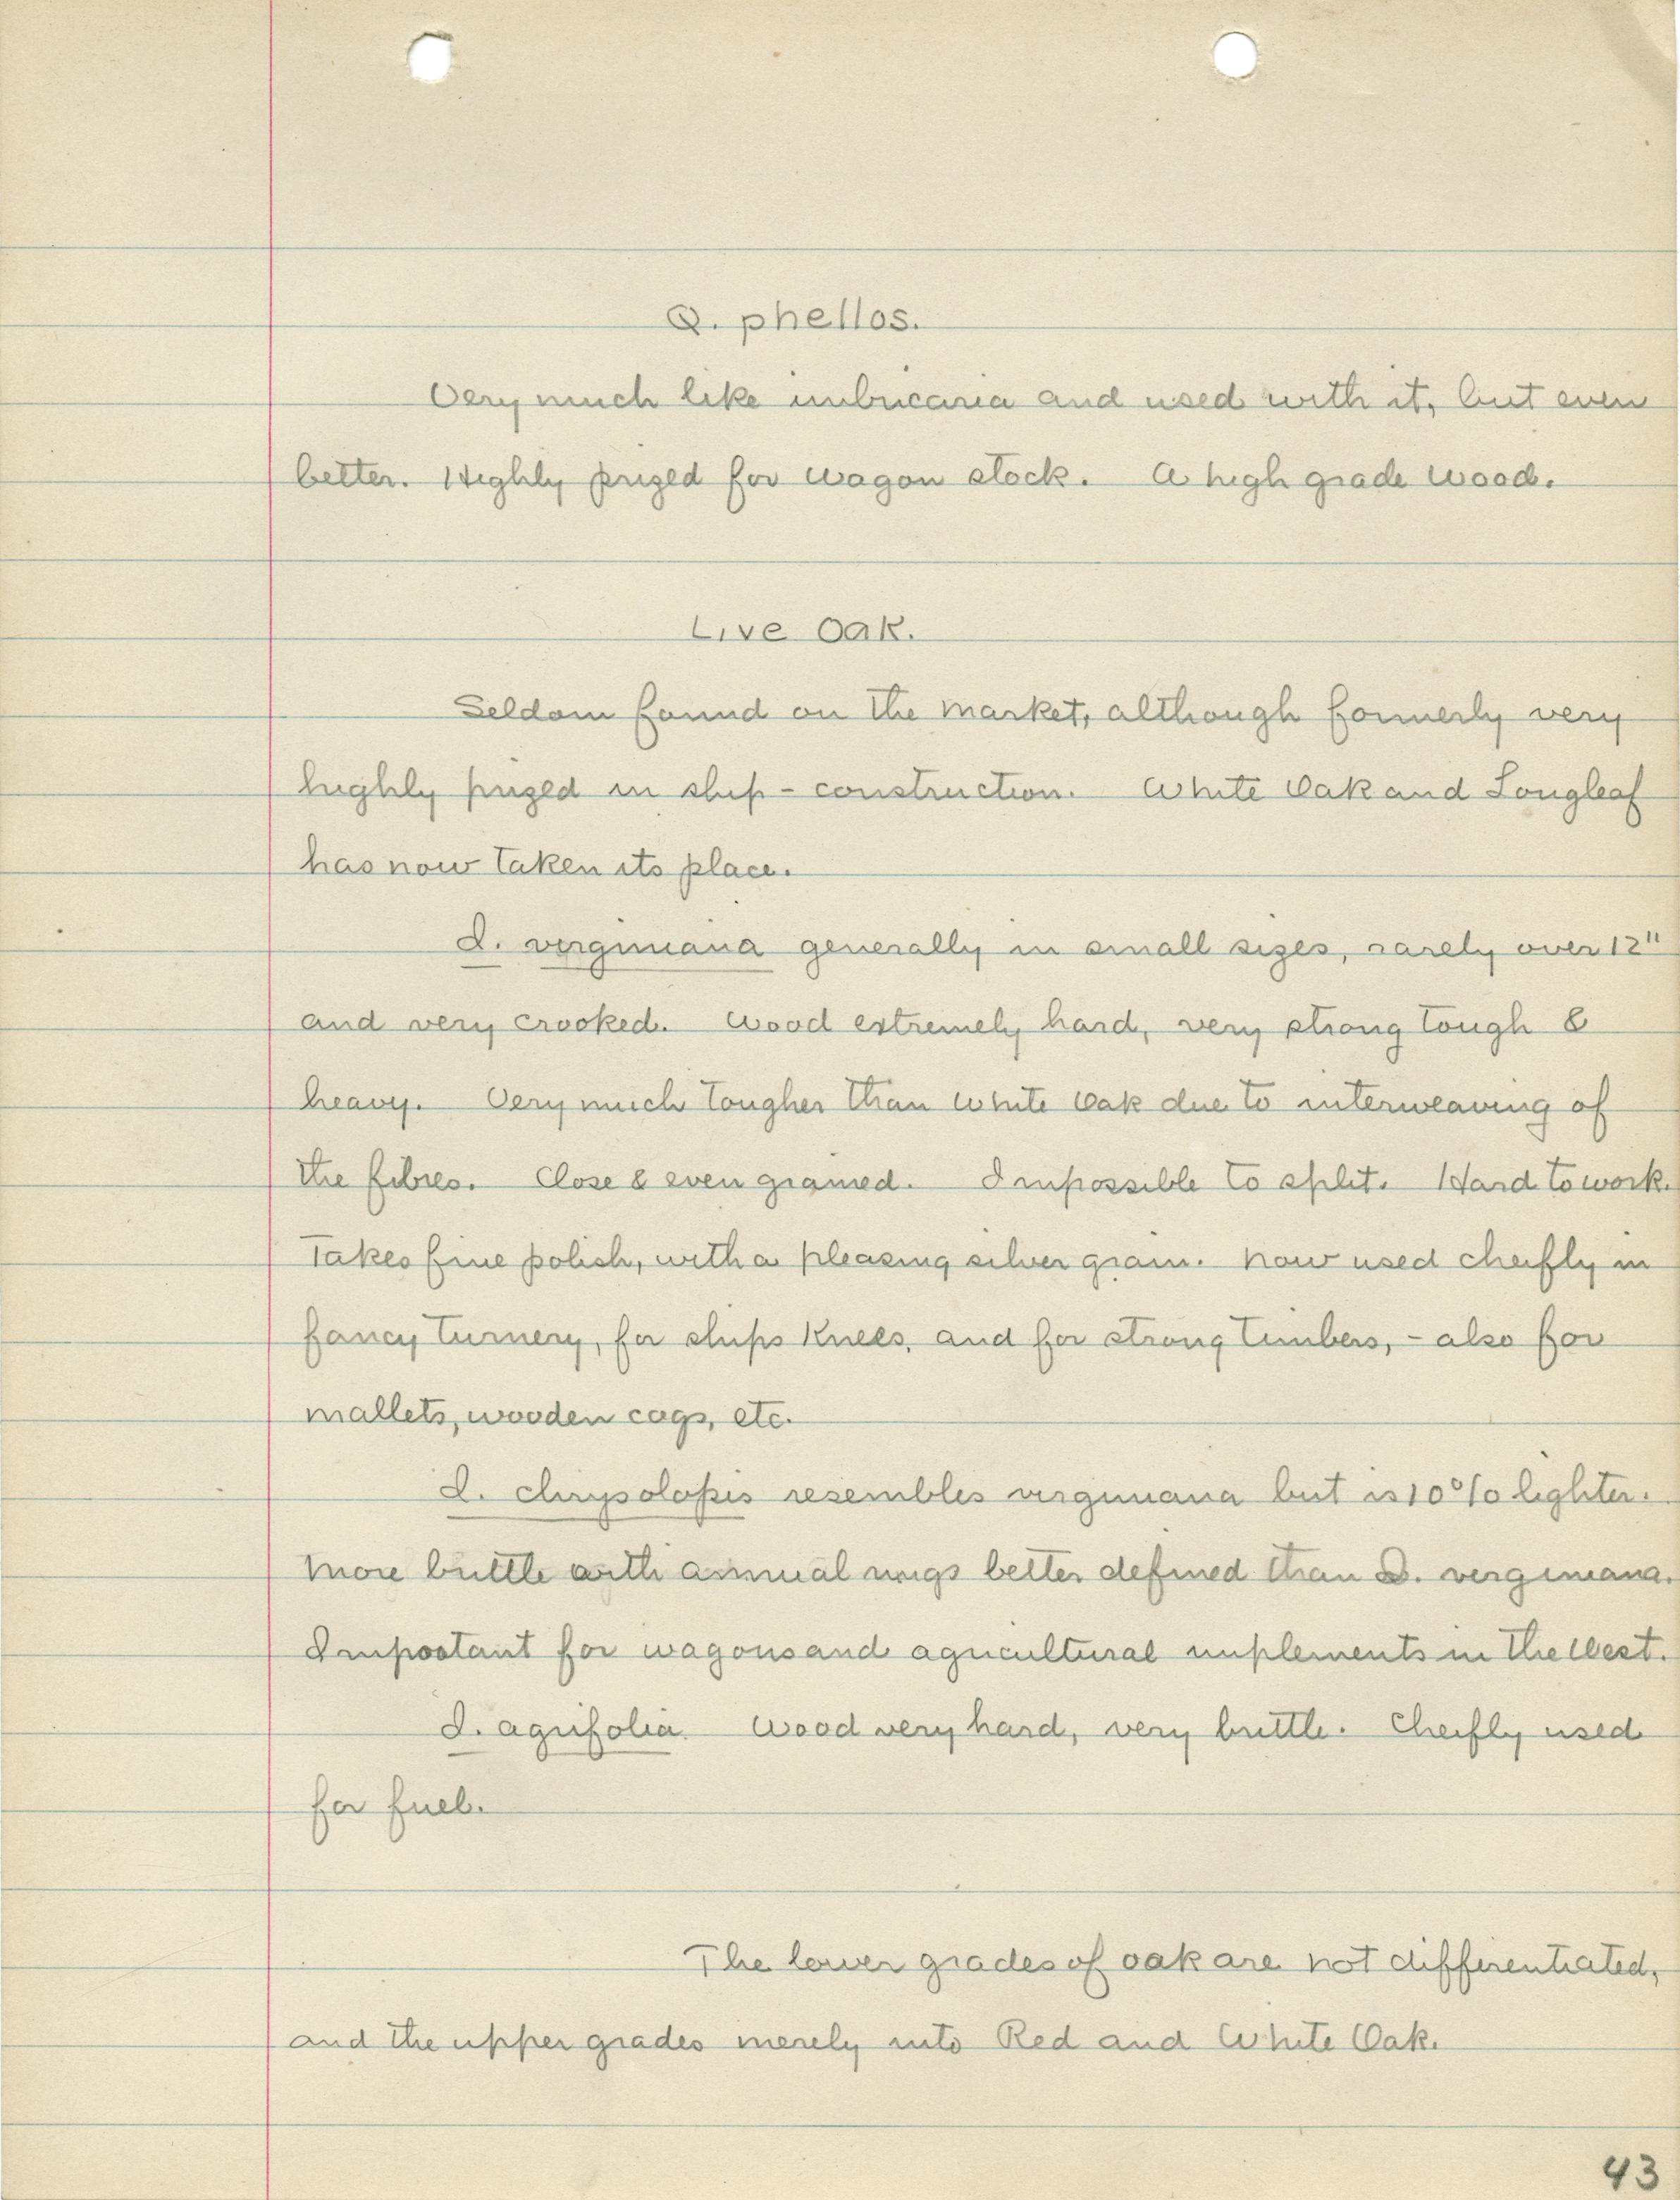 Q. phellos.
Very much like imbricaria and used with it, but even
better. Highly prized for wagon stock. A high grade wood.
Live Oak.
Seldom found on the market, although formerly very
highly prized in ship-construction. White Oak and Longleaf
has now taken its place.
Q. virginiana generally in small sizes, rarely over 12"
and very crooked. Wood extremely hard, very strong tough &
heavy. Very much tougher than White Oak due to interweaving of
the fibres. Close & even grained. Impossible to split. Hard to work.
Takes fine polish, with a pleasing silver grain. Now used cheifly in
fancy turnery, for ships knees, and for strong timbers, - also for
mallets, wooden cogs, etc.
Q. chrysolopis resembles virginiana but is 10% lighter.
More brittle with annual rings better defined than Q. virginiana.
Important for wagons and agricultural implements in the West.
Q. agrifolia. Wood very hard, very brittle. Cheifly used
for fuel.
The lower grades of oak are not differentiated,
and the upper grades merely into Red and White Oak.
43